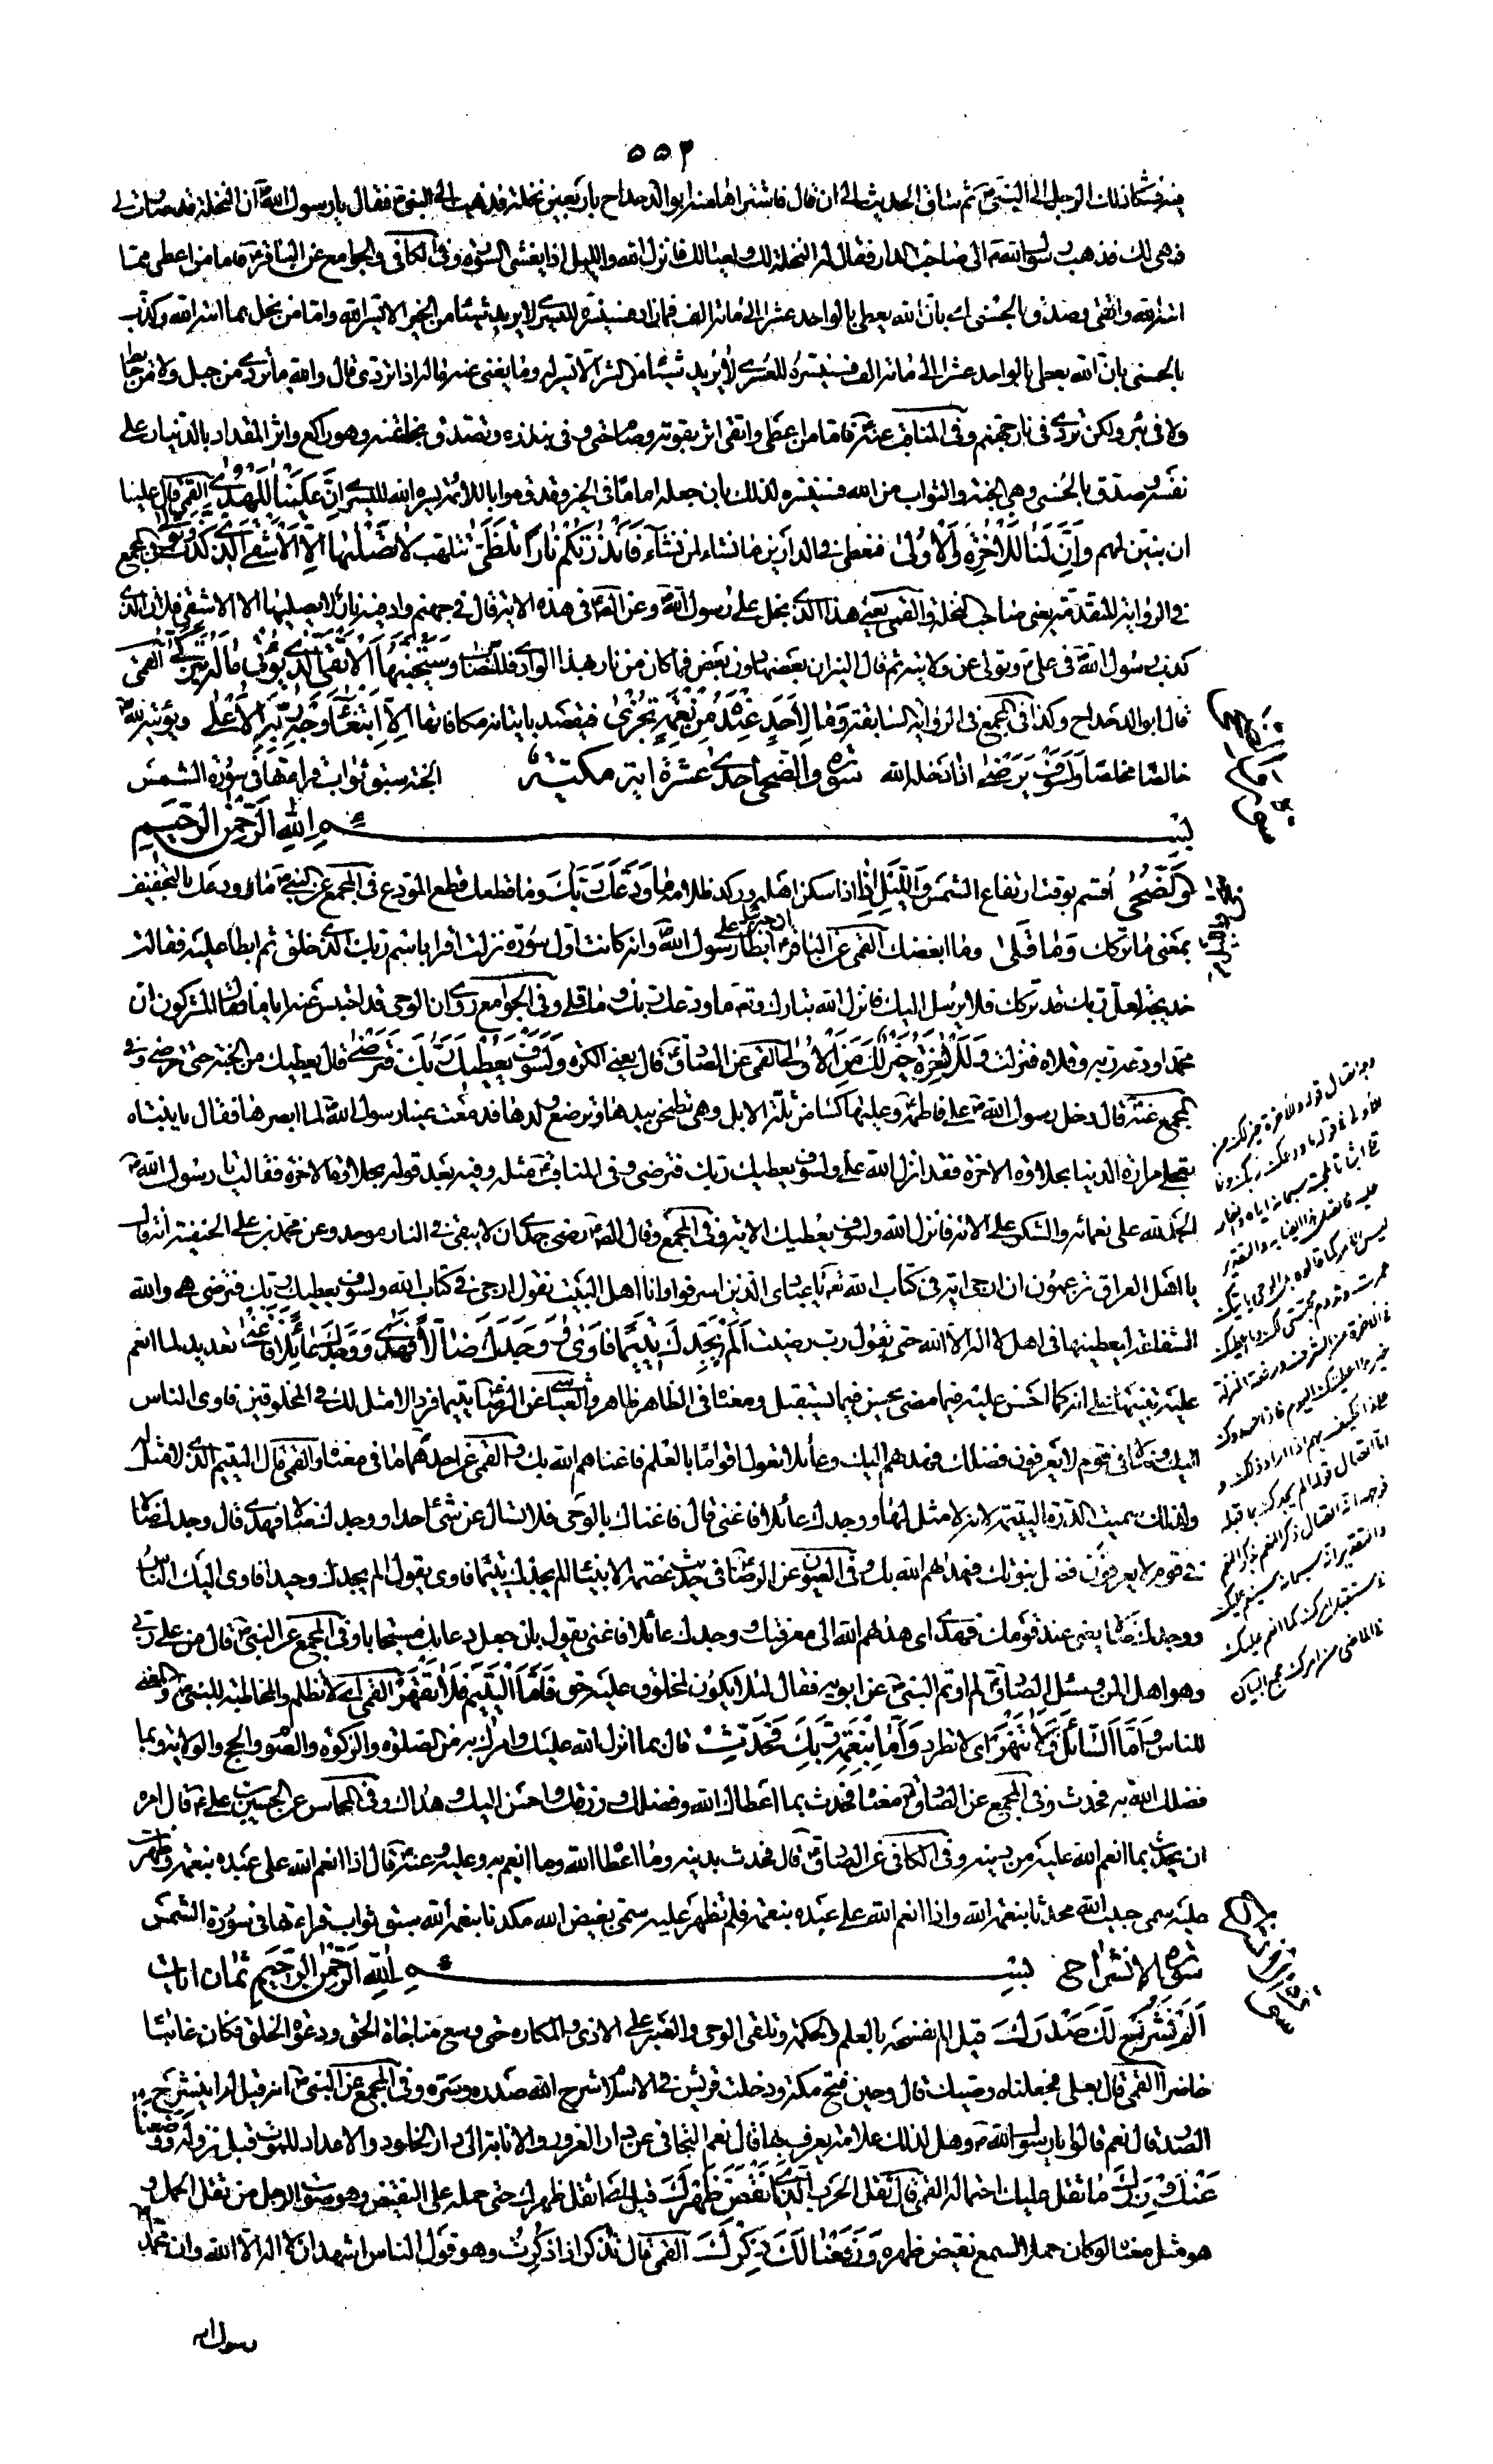 ٥٥٣
فيه فشكا ذلك الرجل الى النبي ثم ساق الحديث الى ان قال فاشتراها منه ابو الدحداح باربعين نخلة فذهب الى النبي فقال يا رسول الله ان النخلة قد صارت لي
فهي لك فذهب رسول الله الى صاحب الدار فقال له النخلة لك ولعيالك فانزل الله والليل اذا يغشى السورة وفي الكافي والجوامع عن الباقر فاما من اعطى مما
اتاه الله واتقى وصدق بالحسنى اي بان الله يعطي بالواحد عشرا الى مائة الف فما زاد فسنيسره لليسرى لا يريد شيئا من الخير الا يسره الله واما من بخل بما اتاه الله وكذب
بالحسنى بان الله يعطي بالواحد عشرا الى مائة الف فسنيسره للعسرى لا يريد شيئا من الشر الا يسر له وما يغني عنه ماله اذا تردى قال والله ما تردى من جبل ولا من حائط
ولا في بئر ولكن تردى في نار جهنم وفي المناقب عنه فاما من اعطى واتقى اثر بقوته وصام حتى وفى بنذره وتصدق بخاتمه وهو راكع واثر المقداد بالدينار على
نفسه وصدق بالحسنى وهي الجنة والثواب من الله فسنيسره لذلك بان جعله اماما في الخير وقدوة وابا للائمة يسره الله لليسرى ان علينا للهدى القمي قال علينا
ان نبين لهم وان لنا للاخرة والاولى فنعطي في الدارين ما نشاء لمن نشاء فانذرتكم نارا تلظى تتلهب لا يصليها الا الاشقى الذي كذب وتولى في المجمع
في الرواية المتقدمة يعني صاحب النخلة والقمي يعني هذا الذي بخل على رسول الله وعن الصادق في هذه الاية قال في جهنم واد فيه نار لا يصليها الا الاشقى فلان الذي
كذب رسول الله في علي وتولى عن ولايته ثم قال النيران بعضها دون بعض فما كان من نار هذا الوادي فللنصاب وسيجنبها الاتقى الذي يؤتي ماله يتزكى القمي
قال ابو الدحداح وكذا في المجمع في الرواية السابقة وما لاحد عنده من نعمة تجزى فيقصد بايتائه مكافاتها الا ابتغاء وجه ربه الاعلى ويؤتيه لله
خالصا مخلصا ولسوف يرضى اذا ادخله الله الجنة سبق ثواب قرائتها في سورة الشمس
سورة والضحى احدى عشرة اية مكية
بسم الله الرحمن الرحيم
والضحى اقسم بوقت ارتفاع الشمس والليل اذا سجى اذا سكن اهله وركد ظلامه ما ودعك ربك وما قطعك قطع المودع في المجمع عن النبي ما ودعك بالتخفيف
بمعنى ما تركك وما قلى وما ابغضك القمي عن الباقر ان جبرئيل ابطأ على رسول الله وانه كانت اول سورة نزلت اقرا باسم ربك الذي خلق ثم ابطأ عليه فقالت
خديجة لعل ربك قد تركك فلا يرسل اليك فانزل الله تبارك وتعالى ما ودعك ربك وما قلى وفي الجوامع روي ان الوحي قد احتبس عنه اياما فقال المشركون ان
محمدا ودعه ربه وقلاه فنزلت وللاخرة خير لك من الاولى القمي عن الصادق قال يعني الكرة ولسوف يعطيك ربك فترضى قال يعطيك من الجنة حتى ترضى وفي
المجمع عنه قال دخل رسول الله على فاطمة وعليها كساء من ثلة الابل وهي تطحن بيدها وترضع ولدها فدمعت عينا رسول الله لما ابصرها فقال يا بنتاه
تعجلي مرارة الدنيا بحلاوة الاخرة فقد انزل الله علي ولسوف يعطيك ربك فترضى وفي المناقب مثله وفيه بعد قوله بحلاوة الاخرة فقالت يا رسول الله
الحمد لله على نعمائه والشكر على الائه فانزل الله ولسوف يعطيك الاية وفي المجمع وقال الصادق رضى جدي ان لا يبقى في النار موحد وعن محمد بن علي الحنفية انه قال
يا اهل العراق تزعمون ان ارجى اية في كتاب الله تعالى يا عبادي الذين اسرفوا وانا اهل البيت نقول ارجى في كتاب الله ولسوف يعطيك ربك فترضى هي والله
الشفاعة ليعطينها في اهل لا اله الا الله حتى يقول رب رضيت الم يجدك يتيما فاوى ووجدك ضالا فهدى ووجدك عائلا فاغنى تعديد لما انعم
عليه تنبيها على انه كما احسن عليه فيما مضى يحسن فيما يستقبل ومعناه في الظاهر ظاهر والعياشي عن الرضا يتيما فردا لا مثل لك في المخلوقين فاوى الناس
اليك وضالا في قوم لا يعرفون فضلك فهداهم اليك وعائلا تعول اقواما بالعلم فاغناهم الله بك والقمي عن احدهما ما في معناه والقمي قال اليتيم الذي لا مثل له
ولذلك سميت الدرة اليتيمة لانه لا مثل لها ووجدك عائلا فاغنى قال فاغناك بالوحي فلا تسأل عن شيء احدا ووجدك ضالا فهدى قال وجدك ضالا
في قوم لا يعرفون فضل نبوتك فهداهم الله بك وفي العيون عن الرضا في حديث عصمة الانبياء الم يجدك يتيما فاوى يقول الم يجدك وحيدا فاوى اليك الناس
ووجدك ضالا يعني عند قومك فهدى اي هداهم الله الى معرفتك ووجدك عائلا فاغنى يقول بان جعل دعاءك مستجابا وفي المجمع عن النبي قال من علي ربي
وهو اهل المن وسئل الصادق لم اوتم النبي عن ابويه فقال لئلا يكون لمخلوق عليه حق فاما اليتيم فلا تقهر القمي اي لا تظلم والمخاطبة للنبي والمعنى
للناس واما السائل فلا تنهر اي لا تطرد واما بنعمة ربك فحدث قال بما انزل الله عليك وامرك به من الصلوة والزكوة والصوم والحج والولاية وبما
فضلك الله به فحدث وفي المجمع عن الصادق معناه فحدث بما اعطاك الله وفضلك ورزقك واحسن اليك وهداك وفي المحاسن عن الحسين بن علي قال امره
ان يحدث بما انعم الله عليه من دينه وفي الكافي عن الصادق قال فحدث بدينه وما اعطاه الله وما انعم به عليه وعنه قال اذا انعم الله على عبده بنعمة وظهرت
عليه سمي حبيب الله محدثا بنعمة الله واذا انعم الله على عبده بنعمة فلم تظهر عليه سمي بغيض الله مكذبا بنعمة الله سبق ثواب قراءتها في سورة الشمس
سورة الانشراح بسم الله الرحمن الرحيم ثمان ايات
الم نشرح لك صدرك قيل الم نفسحه بالعلم والحكمة وتلقي الوحي والصبر على الاذى والمكاره حتى وسع مناجاة الحق ودعوة الخلق فكان غائبا
حاضرا القمي قال بعلي فجعلناه وصيك قال وحين فتح مكة ودخلت قريش في الاسلام شرح الله صدره ويسره وفي المجمع عن النبي انه قيل له اينشرح
الصدر قال نعم قالوا يا رسول الله وهل لذلك علامة يعرف بها قال نعم التجافي عن دار الغرور والانابة الى دار الخلود والاعداد للموت قبل نزوله ووضعنا
عنك وزرك ما ثقل عليك احتماله القمي قال ثقل الحرب الذي انقض ظهرك قيل اي اثقل ظهرك حتى حمله على النقيض وهو صوت الرحل من ثقل الحمل و
هو مثل معناه لو كان حملا لسمع نقيض ظهره ورفعنا لك ذكرك القمي قال تذكر اذا ذكرت وهو قول الناس اشهد ان لا اله الا الله وان محمدا
رسول الله
وجه اتصال قوله وللاخرة خير لك من
الاولى في قوله ما ودعك ربك وما